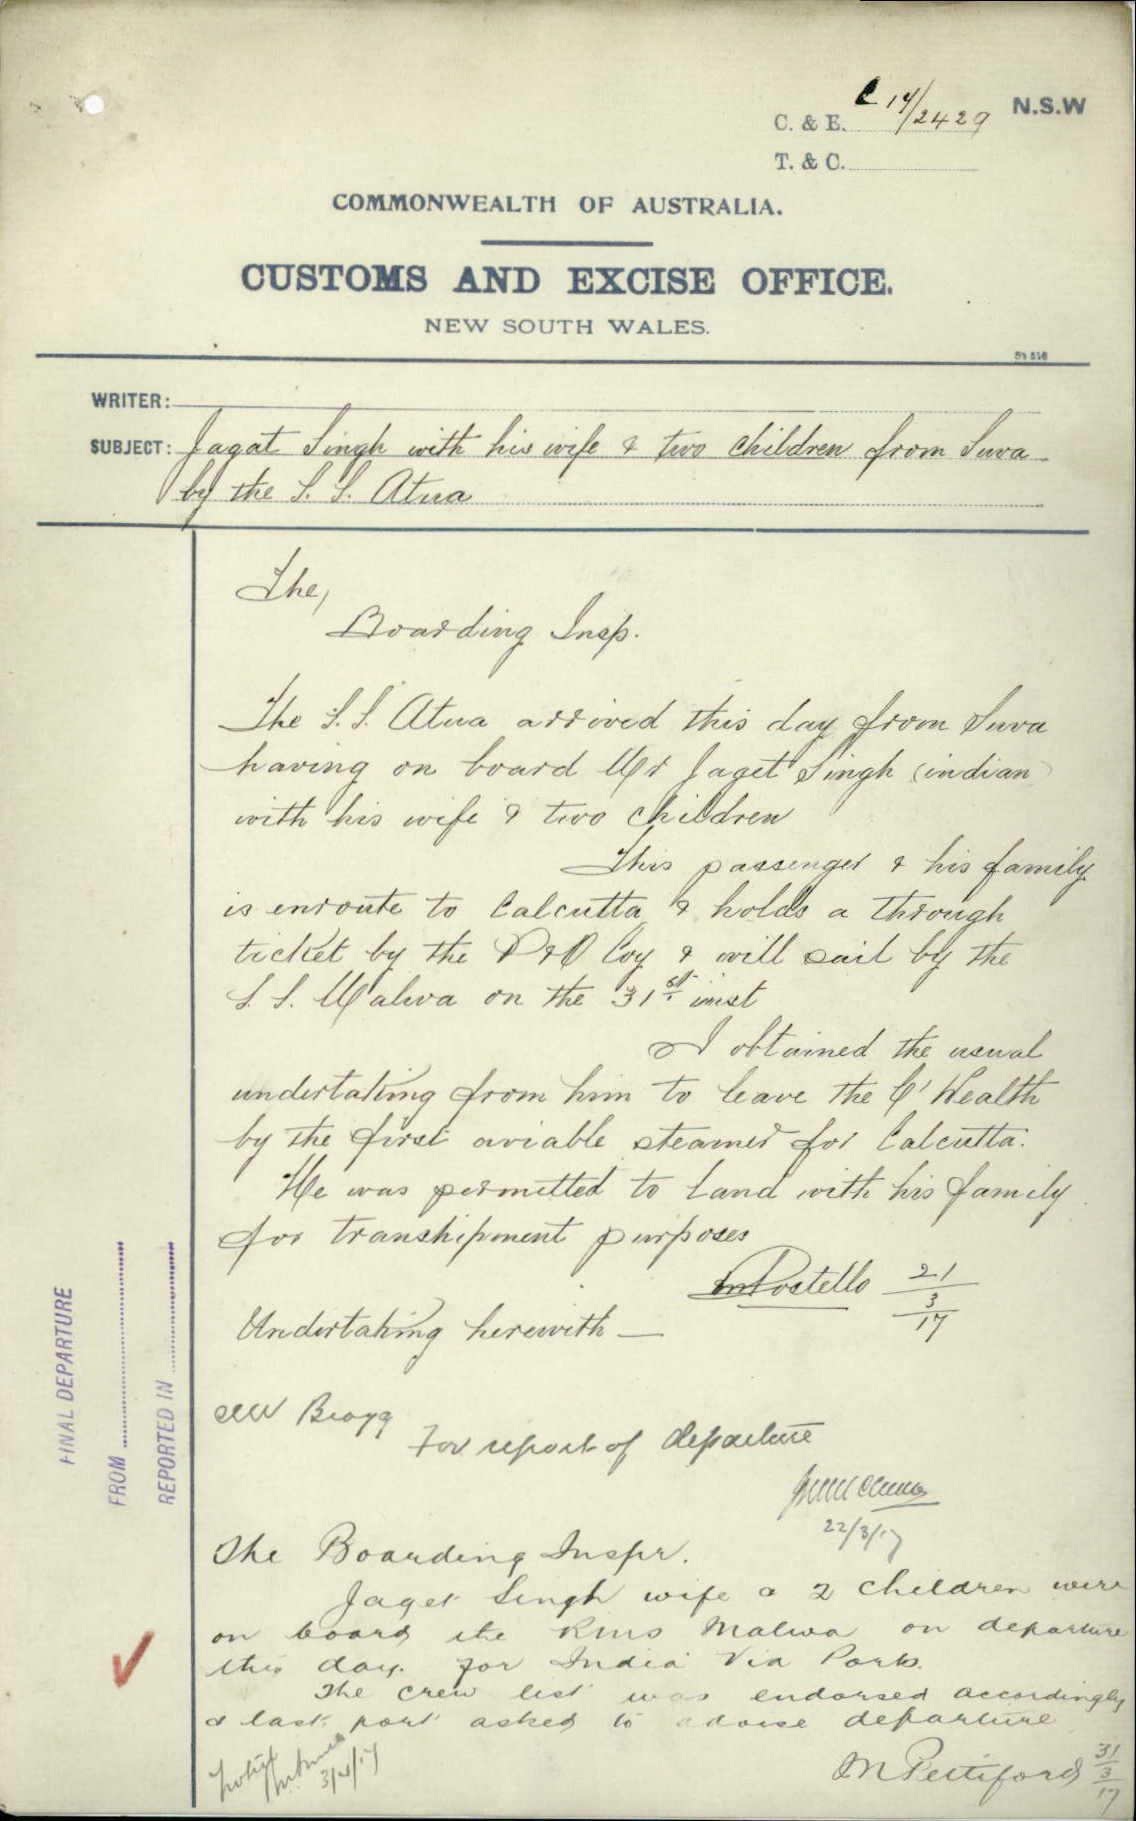 C 17/2429
C. & E.
N.S.W
T. & C.
COMMONWEALTH OF AUSTRALIA.
CUSTOMS AND EXCISE OFFICE.
NEW SOUTH WALES.
WRITER:
SUBJECT: Jagat Singh with his wife & two children from Suva
by the S. S. Atua
The,
Boarding Insp.
The S. S. Atua arrived this day from Suva
having on board Mr Jaget Singh (indian)
with his wife & two children
This passenger & his family
is enroute to Calcutta & holds a through
ticket by the P & O Coy & will sail by the
S. S. Malwa on the 31st inst
I obtained the usual
undertaking from him to leave the C'Wealth
by the first aviable steamer for Calcutta.
He was permitted to land with his family
for transhipment purposes
Costello 21/3/17
Undertaking herewith —
Bragg
For report of departure
22/3/17
The Boarding Inspr.
Jaget Singh wife & 2 children were
on board the RMS Malwa on departure
this day for India Via Ports.
The crew list was endorsed accordingly
& last port asked to advise departure
M Pettiford 31/3/17
3/4/17
FINAL DEPARTURE
FROM
REPORTED IN